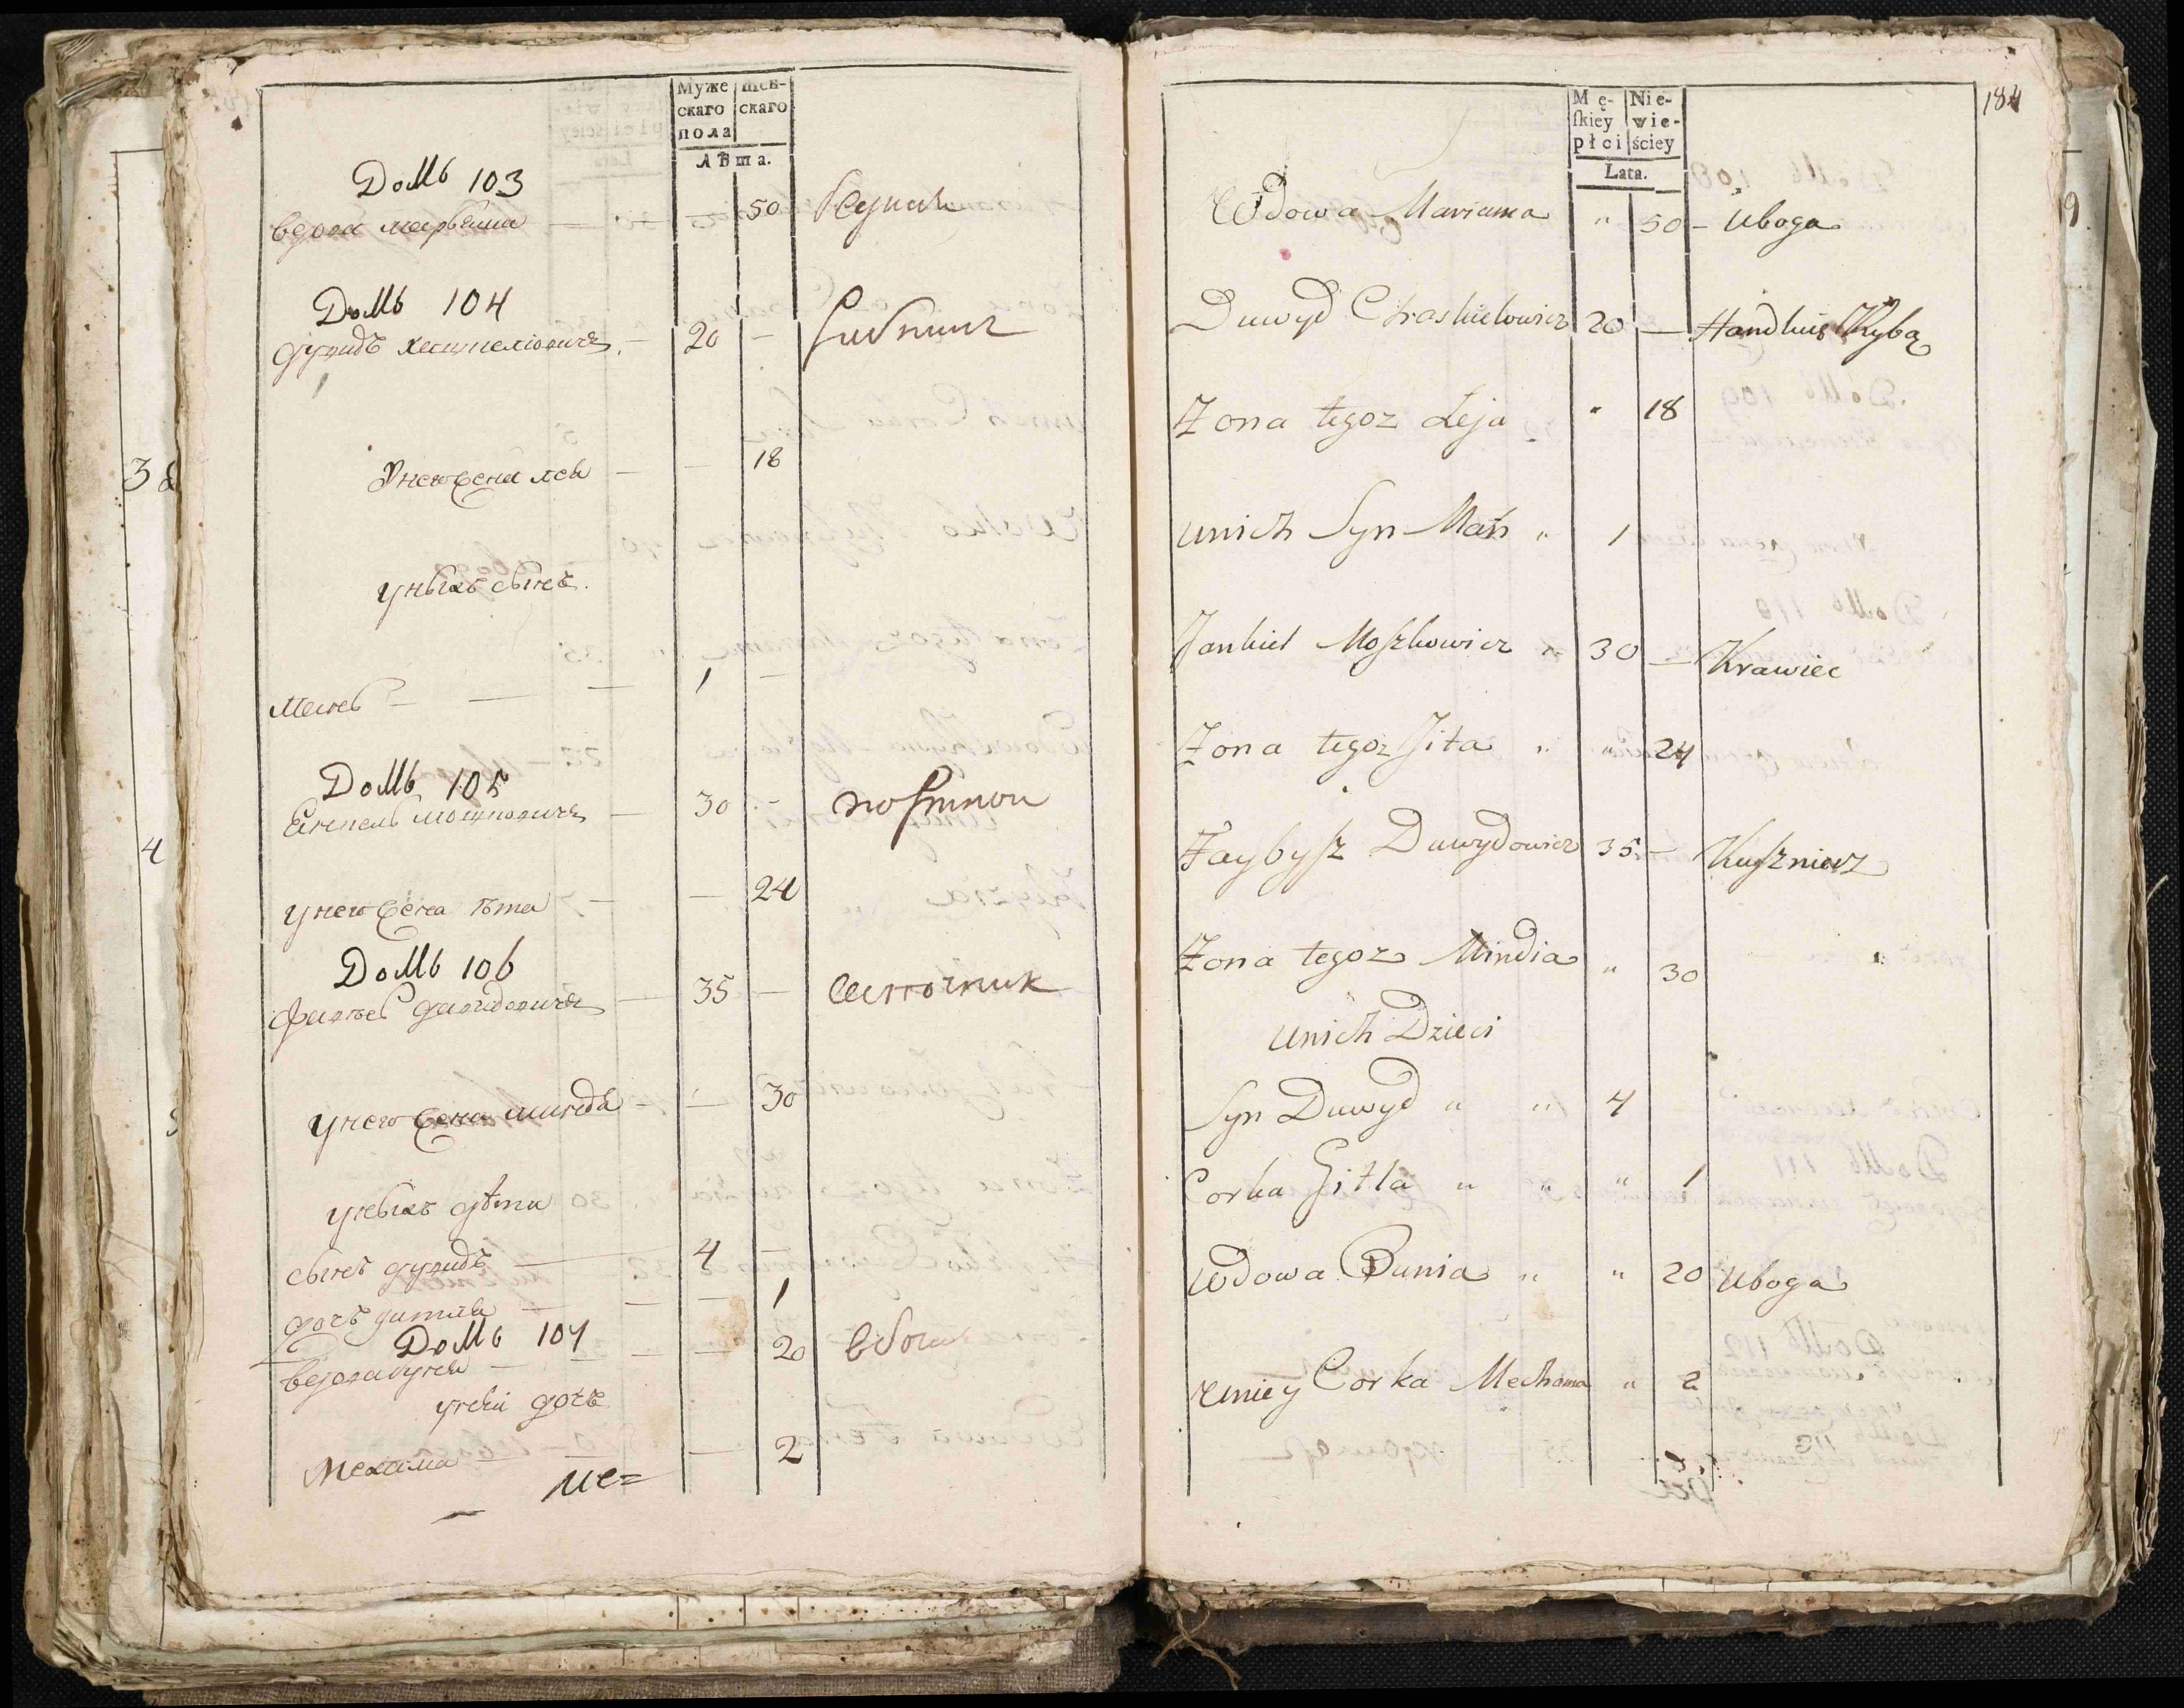 Муже
скаго
пола
женскаго
Лѣта.
Домъ 103
вдова марьяма — — 50
Домъ 104
дувидъ хацкелiовичъ — 20 —
Унего жена лея — — 18
унихъ сынъ
Манъ — — — 1 —
Домъ 105
Янкель мошковичъ — 30 — портной
унего жена ѣта — — 24
Домъ 106
файвеь давидовичъ — 35 —
унего жена минда — — 30
унихъ дѣти
сынъ дувидъ — 4 —
дочь гитля — — — 1
Домъ 107
вдова буня — — — 20 вбога
унеи дочь
Мехама — — 2
Ме=
184
Mę-
ſkiey
płci
Nie-
wie-
ściey
Lata.
Wdowa Mariama " 50 – Uboga
Duwyd Chaskielowicz 20 — Handluie Rybą
Zona tegoz Leja " 18
unich Syn Mań " 1
Jankiel Moszkowicz " 30 — Krawiec
Zona tegoz Jita " " 24
Faybysz Duwydowicz 35 – Kusznierz
Zona tegoz Mindia " 30
unich Dzieci
Syn Duwyd " " 4
Corka Gitla " " " 1
Wdowa Bunia " " 20 Uboga
uniey Corka Mechama " 2